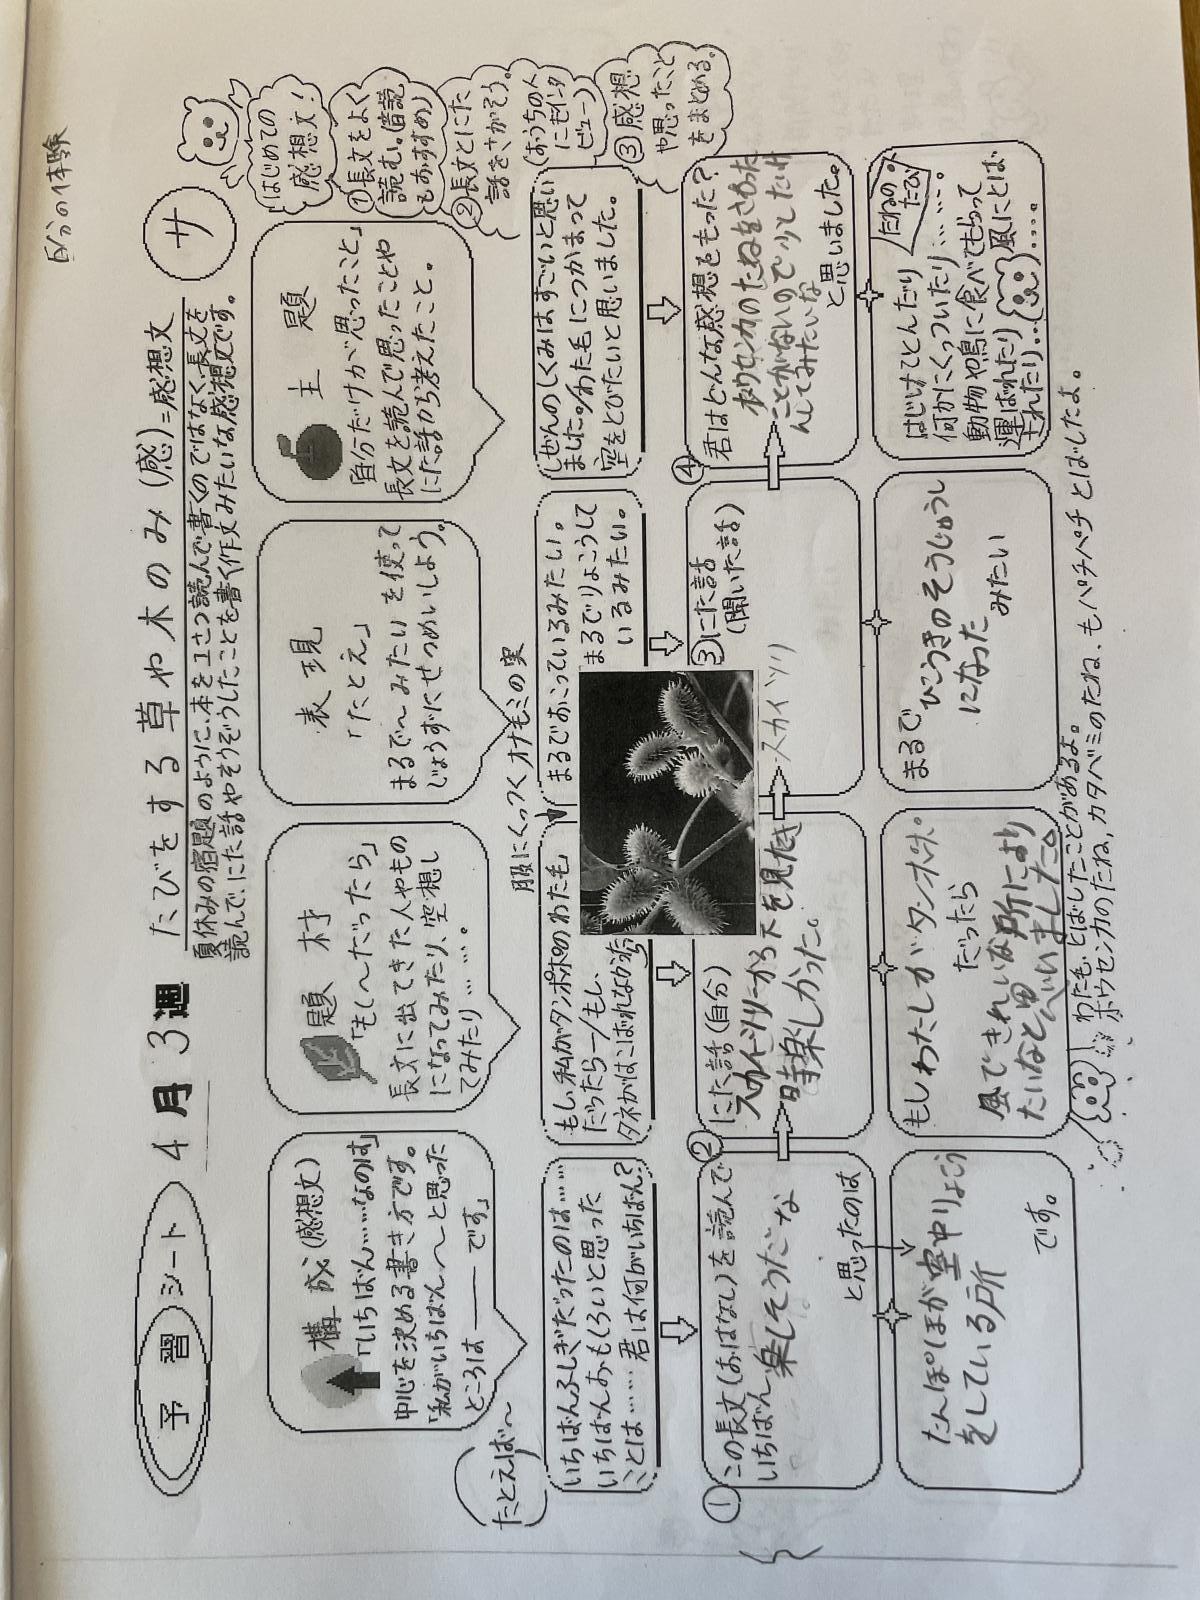 自分の体験
予習シート
4月3週
たびをする草や木のみ(感)=感想文
サ
夏休みの宿題のように、本を1さつ読んで書くのではなく、長文を
読んで、にた話やそうぞうしたことを書く作文みたいな感想文です。
はじめての
感想文!
①長文をよく
読む。(音読
もおすすめ)
②長文とにた
話をさがそう。
(おうちの人
にもインタ
ビュー)
③感想
や思ったこと
をまとめる。
構成(感想文)
「いちばん……なのは」
中心を決める書き方です。
「私がいちばん~と思った
ところは――です」
題材
「もし~だったら」
長文に出てきた人やもの
になってみたり、空想し
てみたり……。
表現
「たとえ」
まるで~みたいを使って
じょうずにせつめいしよう。
主題
「自分だけが思ったこと」
長文を読んで思ったことや
にた話から考えたこと。
たとえば~
いちばんふしぎだったのは……
いちばんおもしろいと思った
ことは……君は何がいちばん?
もし、私がタンポポのわた毛
だったら―/もし、
タネがはこばれなかったら
服にくっつくオナモミの実
まるでおこっているみたい。
まるでりょこうして
いるみたい。
しぜんのしくみはすごいと思い
ました。/わた毛につかまって
空をとびたいと思いました。
①この長文(おはなし)を読んで
いちばん楽しそうだな
と思ったのは
②にた話(自分)
スカイツリーから下を見た
時楽しかった。
③にた話
(聞いた話)
スカイツリ
④君はどんな感想をもった?
ホウセンカのたねをさわった
ことがないので少したけ
んしてみたいな
と思いました。
たんぽぽが空中りょこう
をしている所
です。
もしわたしがタンポポ。
だったら
風できれいな所により
たいなと思いました。
まるで
ひこうきのそうじゅうし
になった
みたい
たねの
たび
はじけてとんだり
何かにくっついたり……。
動物や鳥に食べてもらって
運ばれたり 風にとば
されたり……。
わたも、とばしたことがあるよ。
ホウセンカのたね、カタバミのたね、もパチパチとばしたよ。